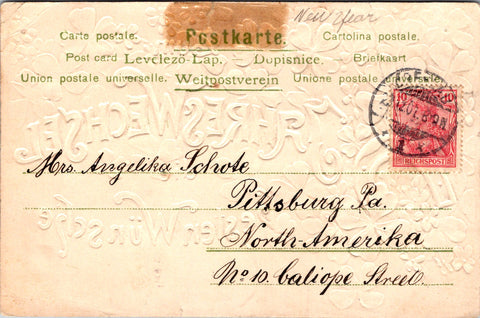 New Year
Carte postale. Postkarte. Cartolina postale.
Post card Levélező-Lap. Dopisnice. Briefkaart
Union postale universelle. Weltpostverein Unione postale universale
10 10
REICHSPOST
JAHRESWECHSEL
Wünsche
Mrs. Angelika Schote
Pittsburg Pa.
North-Amerika
No 10. Caliope Street.